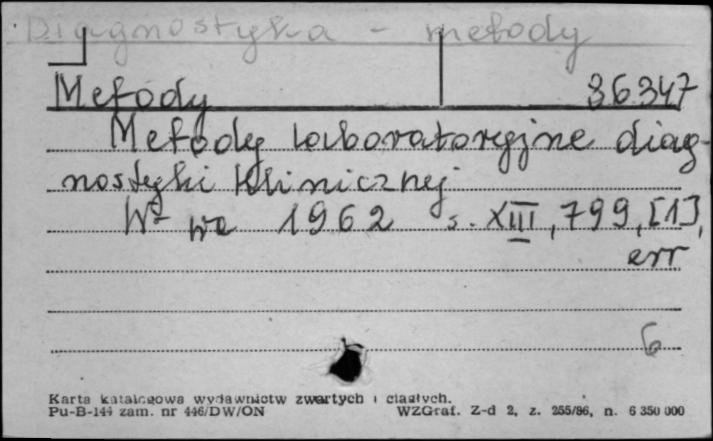 Diagnostyka - metody
Metody 36.347
Metody laboratoryjne diag-
nostyki klinicznej
W-wa 1962 s. XIII, 799, [1],
err
6
Karta katalogowa wydawnictw zwartych i ciągłych.
Pu-B-144 zam. nr 446/DW/ON WZGraf. Z-d 2, z. 255/86, n. 6 350 000